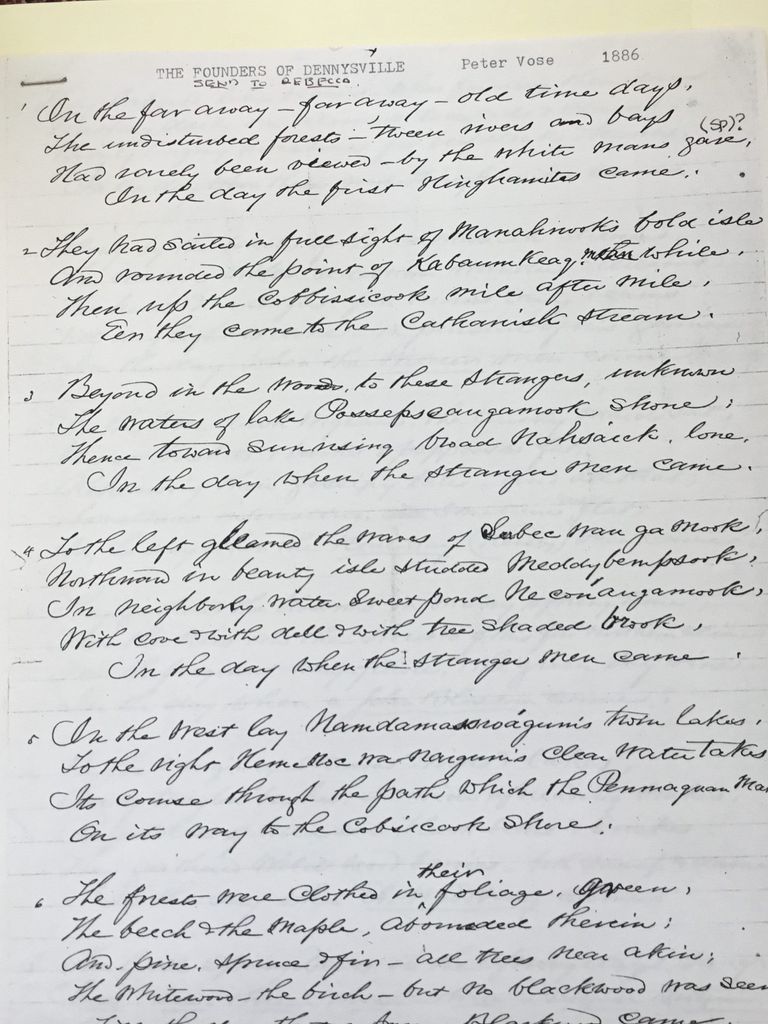 THE FOUNDERS OF DENNYSVILLE Peter Vose 1886
SEND TO REBECCA
1 On the far away – far away – old time days,
The undisturbed forests – 'tween rivers and bays (SP)?
Had rarely been viewed – by the white mans gaze,
In the day the first Hinghamites came.
2 They had sailed in full sight of Manahnook's bold isle
And rounded the point of Kabaumkeag while,
Then up the Cobbissicook mile after mile,
Een they came to the Cathanisk stream.
3 Beyond in the woods, to these strangers, unknown
The waters of lake Possepscaugamook shone;
Thence toward sunrising broad Nahsaick, lone,
In the day when the stranger men came.
4 To the left gleamed the waves of Subec wau ga mook,
Northward in beauty isle studded Meddybempsook,
In neighborly water sweet pond Ne con augamook,
With cove & with dell & with tree shaded brook,
In the day when the stranger men came.
5 In the west lay Namdamasswágum's twin lakes,
To the right clear water takes
Its course through the path which the Penmaquan
On its way to the Cobsicook shore.
6 The forests were clothed in their foliage, green,
The beech & the maple, abounded therein;
And pine, spruce & fir – all trees near akin;
The whitewood – the birch – but no blackwood was seen